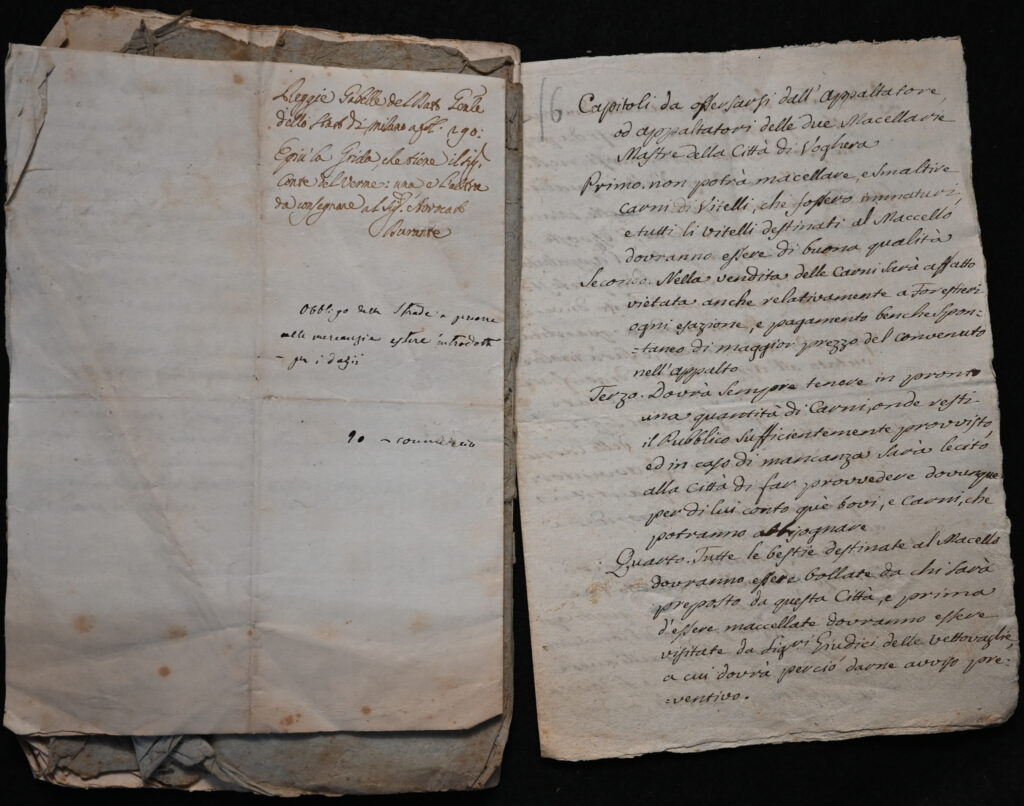 Reggie Gabelle del
dello Stato di Milano a fol. 290:
E più la Grida, che tiene il Sig.
Conte del Verme: una e l'altra
da consegnare al Sig.
Durante
Obbligo delle Strade a
alle mercanzie estere introdotte
per i dazii
90
16
Capitoli da osservarsi dall'Appaltatore,
od appaltatori delle due Macellarie
Mastre della Città di Voghera
Primo. non potrà macellare, e smaltire
Carni di Vitelli, che fossero immaturi,
e tutti li vitelli destinati al Maccello
dovranno essere di buona qualità
Secondo. Nella vendita delle Carni sarà affatto
vietata anche relativamente a Forestieri
ogni esazione, e pagamento benche spon-
=taneo di maggior prezzo del convenuto
nell'appalto
Terzo. Dovrà sempre tenere in pronto
una quantità di Carni, onde resti
il Pubblico sufficientemente provvisto,
ed in caso di mancanza sarà lecito
alla Città di far provvedere dovunque
per di lui conto què bovi, e Carni, che
potranno abbisognare
Quarto. Tutte le bestie destinate al Macello
dovranno essere bollate da chi sarà
preposto da questa Città, e prima
d'essere maccellate dovranno essere
visitate da Sigri Giudici delle vettovaglie,
a cui dovrà perciò darne avviso pre=
=ventivo.